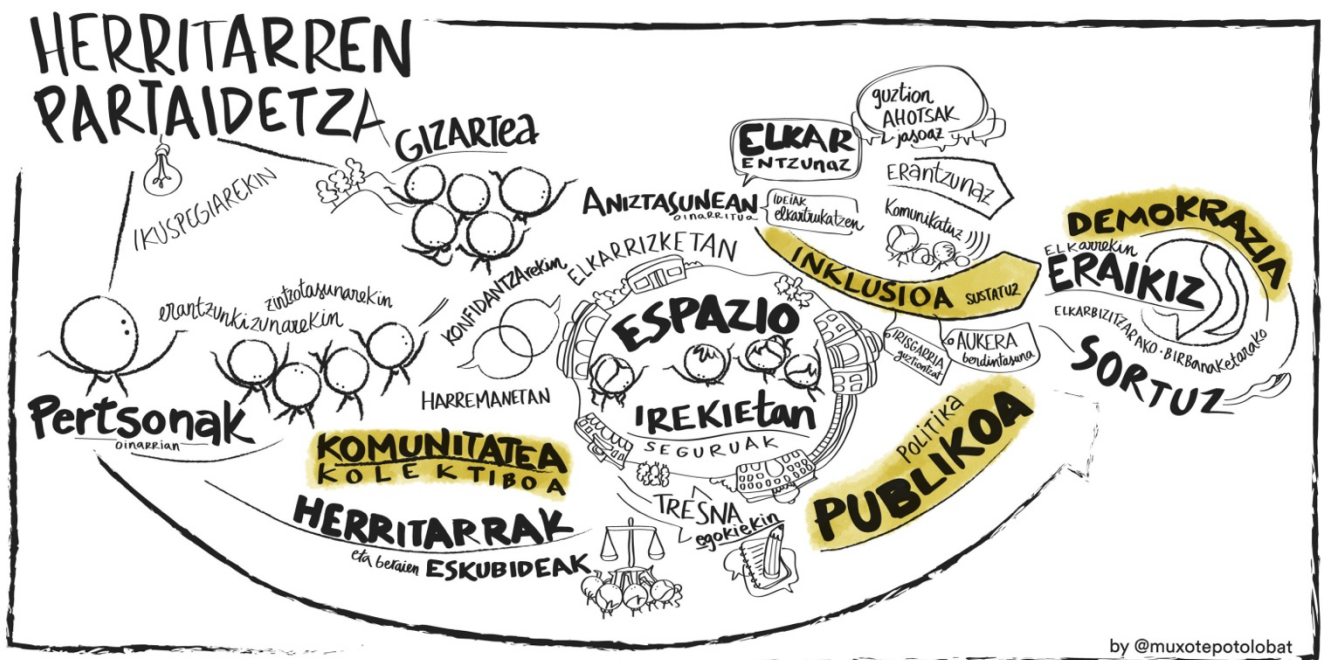 HERRITARREN
PARTAIDETZA
GIZARTEA
IKUSPEGIAREKIN
erantzunkizunarekin
zintzotasunarekin
Pertsonak
OINARRIAN
KONFIDANTZArekin
HARREMANETAN
KOMUNITATEA
KOLEKTIBOA
HERRITARRAK
eta beraien ESKUBIDEAK
ELKARRIZKETAN
ESPAZIO
IREKIETAN
SEGURUAK
TRESNA
egokiekin
ANIZTASUNEAN
OINARRITUA
IDEIAK
elkartrukatzen
ELKAR
ENTZUNAZ
guztion
AHOTSAK
jasoaz
ERANTZUNAZ
Komunikatuz
INKLUSIOA SUSTATUZ
IRISGARRIA
guztiontzat
AUKERA
berdintasuna
POLITIKA
PUBLIKOA
DEMOKRAZIA
ELKARREKIN
ERAIKIZ
ELKARBIZITZARAKO · BIRBANAKETARAKO
SORTUZ
by @muxotepotolobat